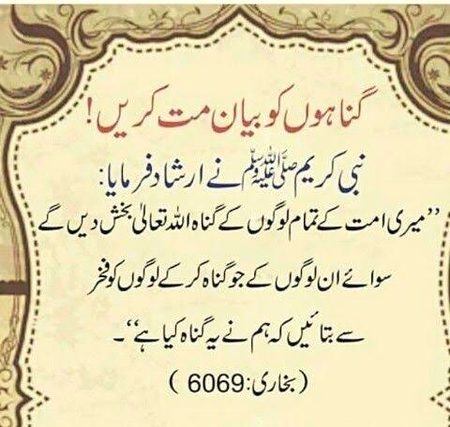 گناہوں کو بیان مت کریں!
نبی کریم ﷺ نے ارشاد فرمایا:
’’میری امت کے تمام لوگوں کے گناہ اللہ تعالیٰ بخش دیں گے
سوائے ان لوگوں کے جو گناہ کر کے لوگوں کو فخر
سے بتائیں کہ ہم نے یہ گناہ کیا ہے‘‘۔
(بخاری: 6069)